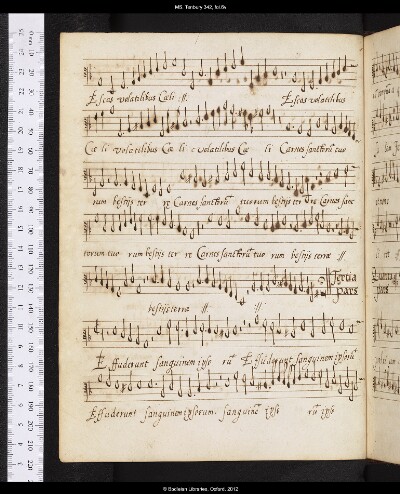 MS. Tenbury 342, fol.8v
Escas volatilibus Cœli :||: Escas volatilibus
Cœ li volatilibus Cœ li volatilibus Cœ li Carnes sanctorū tuo
rum bestijs ter re Carnes sanctorū tuorum bestijs ter re Carnes sanc
torum tuo rum bestijs ter re Carnes sanctorū tuo rum bestijs terræ :||
Tertia
pars
bestijs terræ :||: :||:
Effuderunt sanguinem ipso rū Effuderunt sanguinem ipsorū
Effuderunt sanguinem ipsorum. sanguinē ipso rū ipso
© Bodleian Libraries, Oxford, 2012